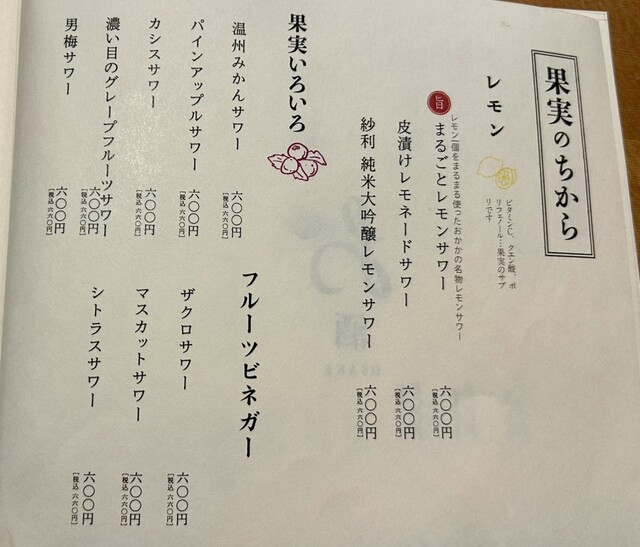 果実のちから
レモン
ビタミンC、クエン酸、ポ
リフェノール…果実のサプ
リです
旨
レモン一個をまるまる使ったおかかの名物レモンサワー
まるごとレモンサワー
六〇〇円
[税込 六六〇円]
皮漬けレモネードサワー
六〇〇円
[税込 六六〇円]
紗利 純米大吟醸レモンサワー
六〇〇円
[税込 六六〇円]
果実いろいろ
温州みかんサワー
六〇〇円
[税込 六六〇円]
パインアップルサワー
六〇〇円
[税込 六六〇円]
カシスサワー
六〇〇円
[税込 六六〇円]
濃い目のグレープフルーツサワー
六〇〇円
[税込 六六〇円]
男梅サワー
六〇〇円
[税込 六六〇円]
フルーツビネガー
ザクロサワー
六〇〇円
[税込 六六〇円]
マスカットサワー
六〇〇円
[税込 六六〇円]
シトラスサワー
六〇〇円
[税込 六六〇円]